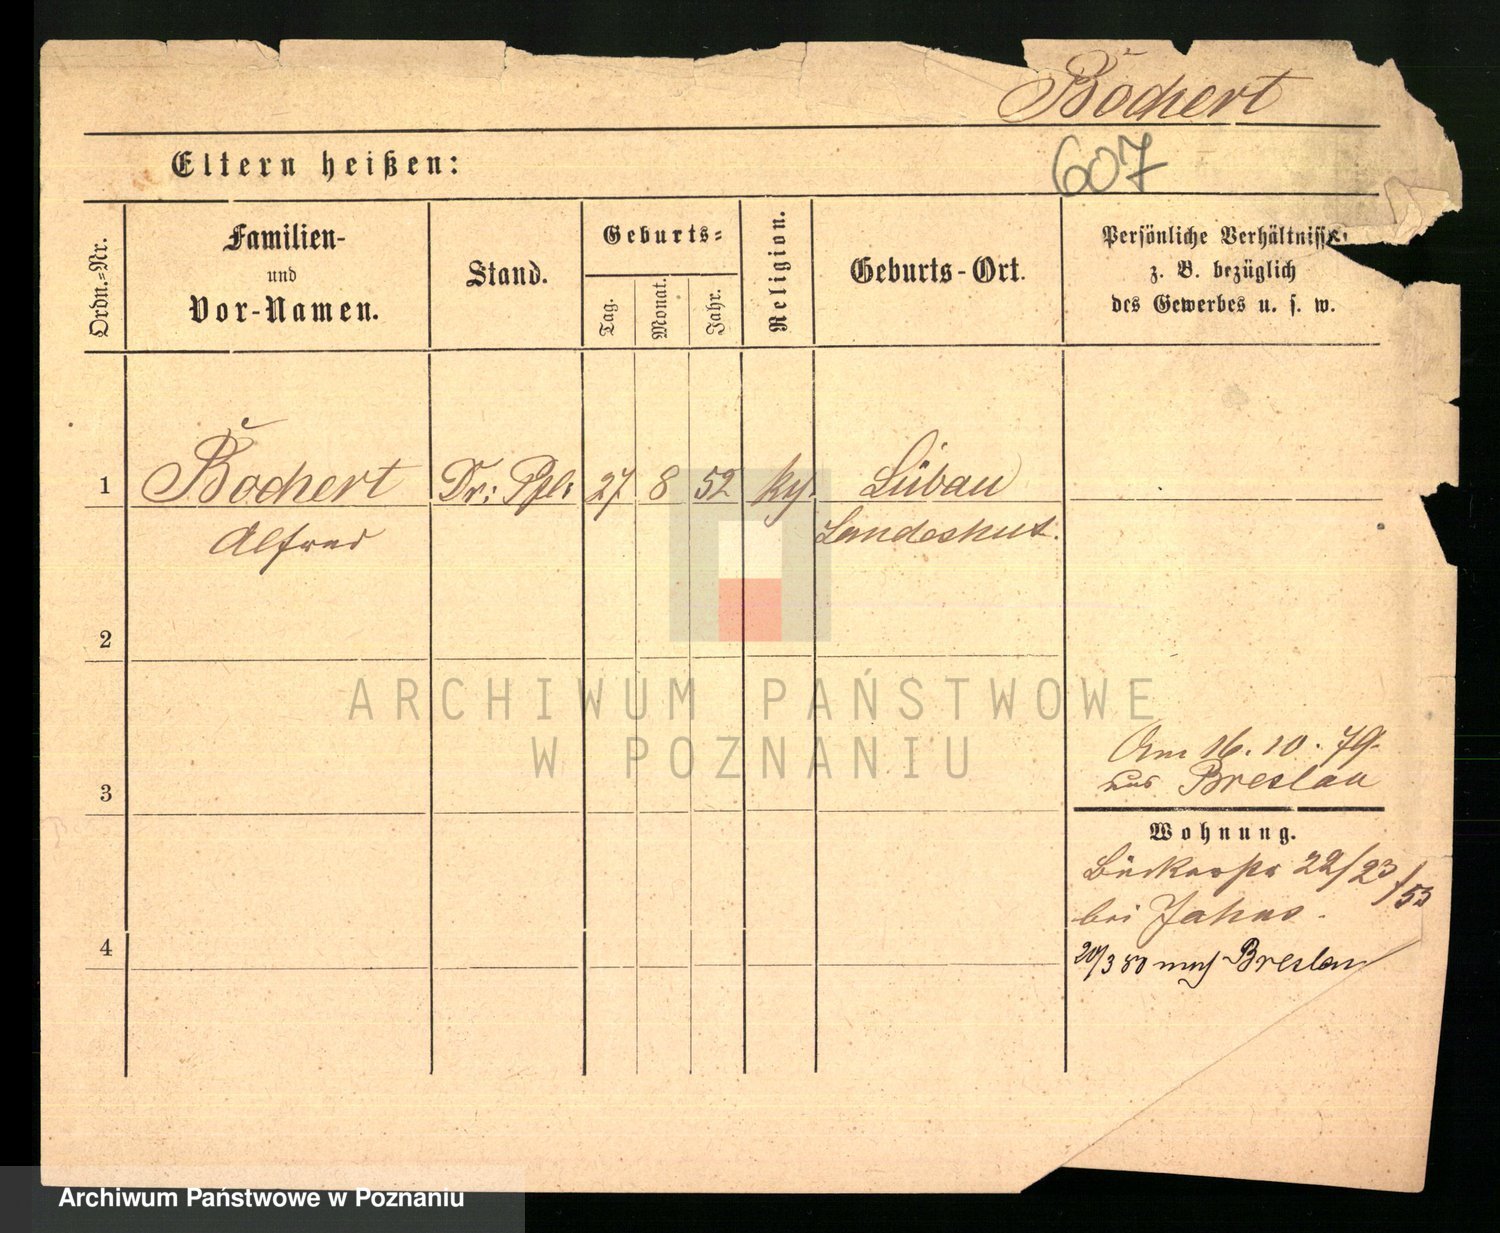 Bochert
607
Eltern heißen:
Ordn.=Nr.
Familien-
und
Vor-Namen.
Stand.
Geburts=
Tag.
Monat.
Jahr.
Religion.
Geburts-Ort.
Persönliche Verhältnisse
z. B. bezüglich
des Gewerbes u. s. w.
1
Bochert
27
8
52
Alfred
Landeshut.
2
ARCHIWUM PAŃSTWOWE
W POZNANIU
3
Am 16. 10. 79.
aus Breslau
Wohnung.
22/23
/53
bei
4
20/3 80 nach Breslau
Archiwum Państwowe w Poznaniu